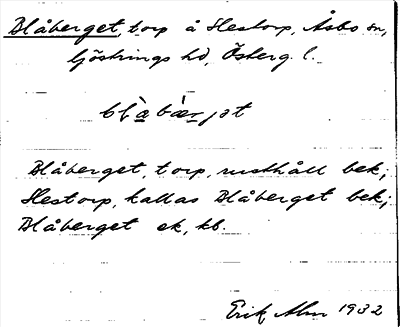 Blåberget, torp å Hestorp, Åsbo sn,
Göstrings hd, Österg. l.
Blåberget, torp, rusthåll bek;
Hestorp, kallas Blåberget bek;
Blåberget ek, kb.
Erik Alm 1932